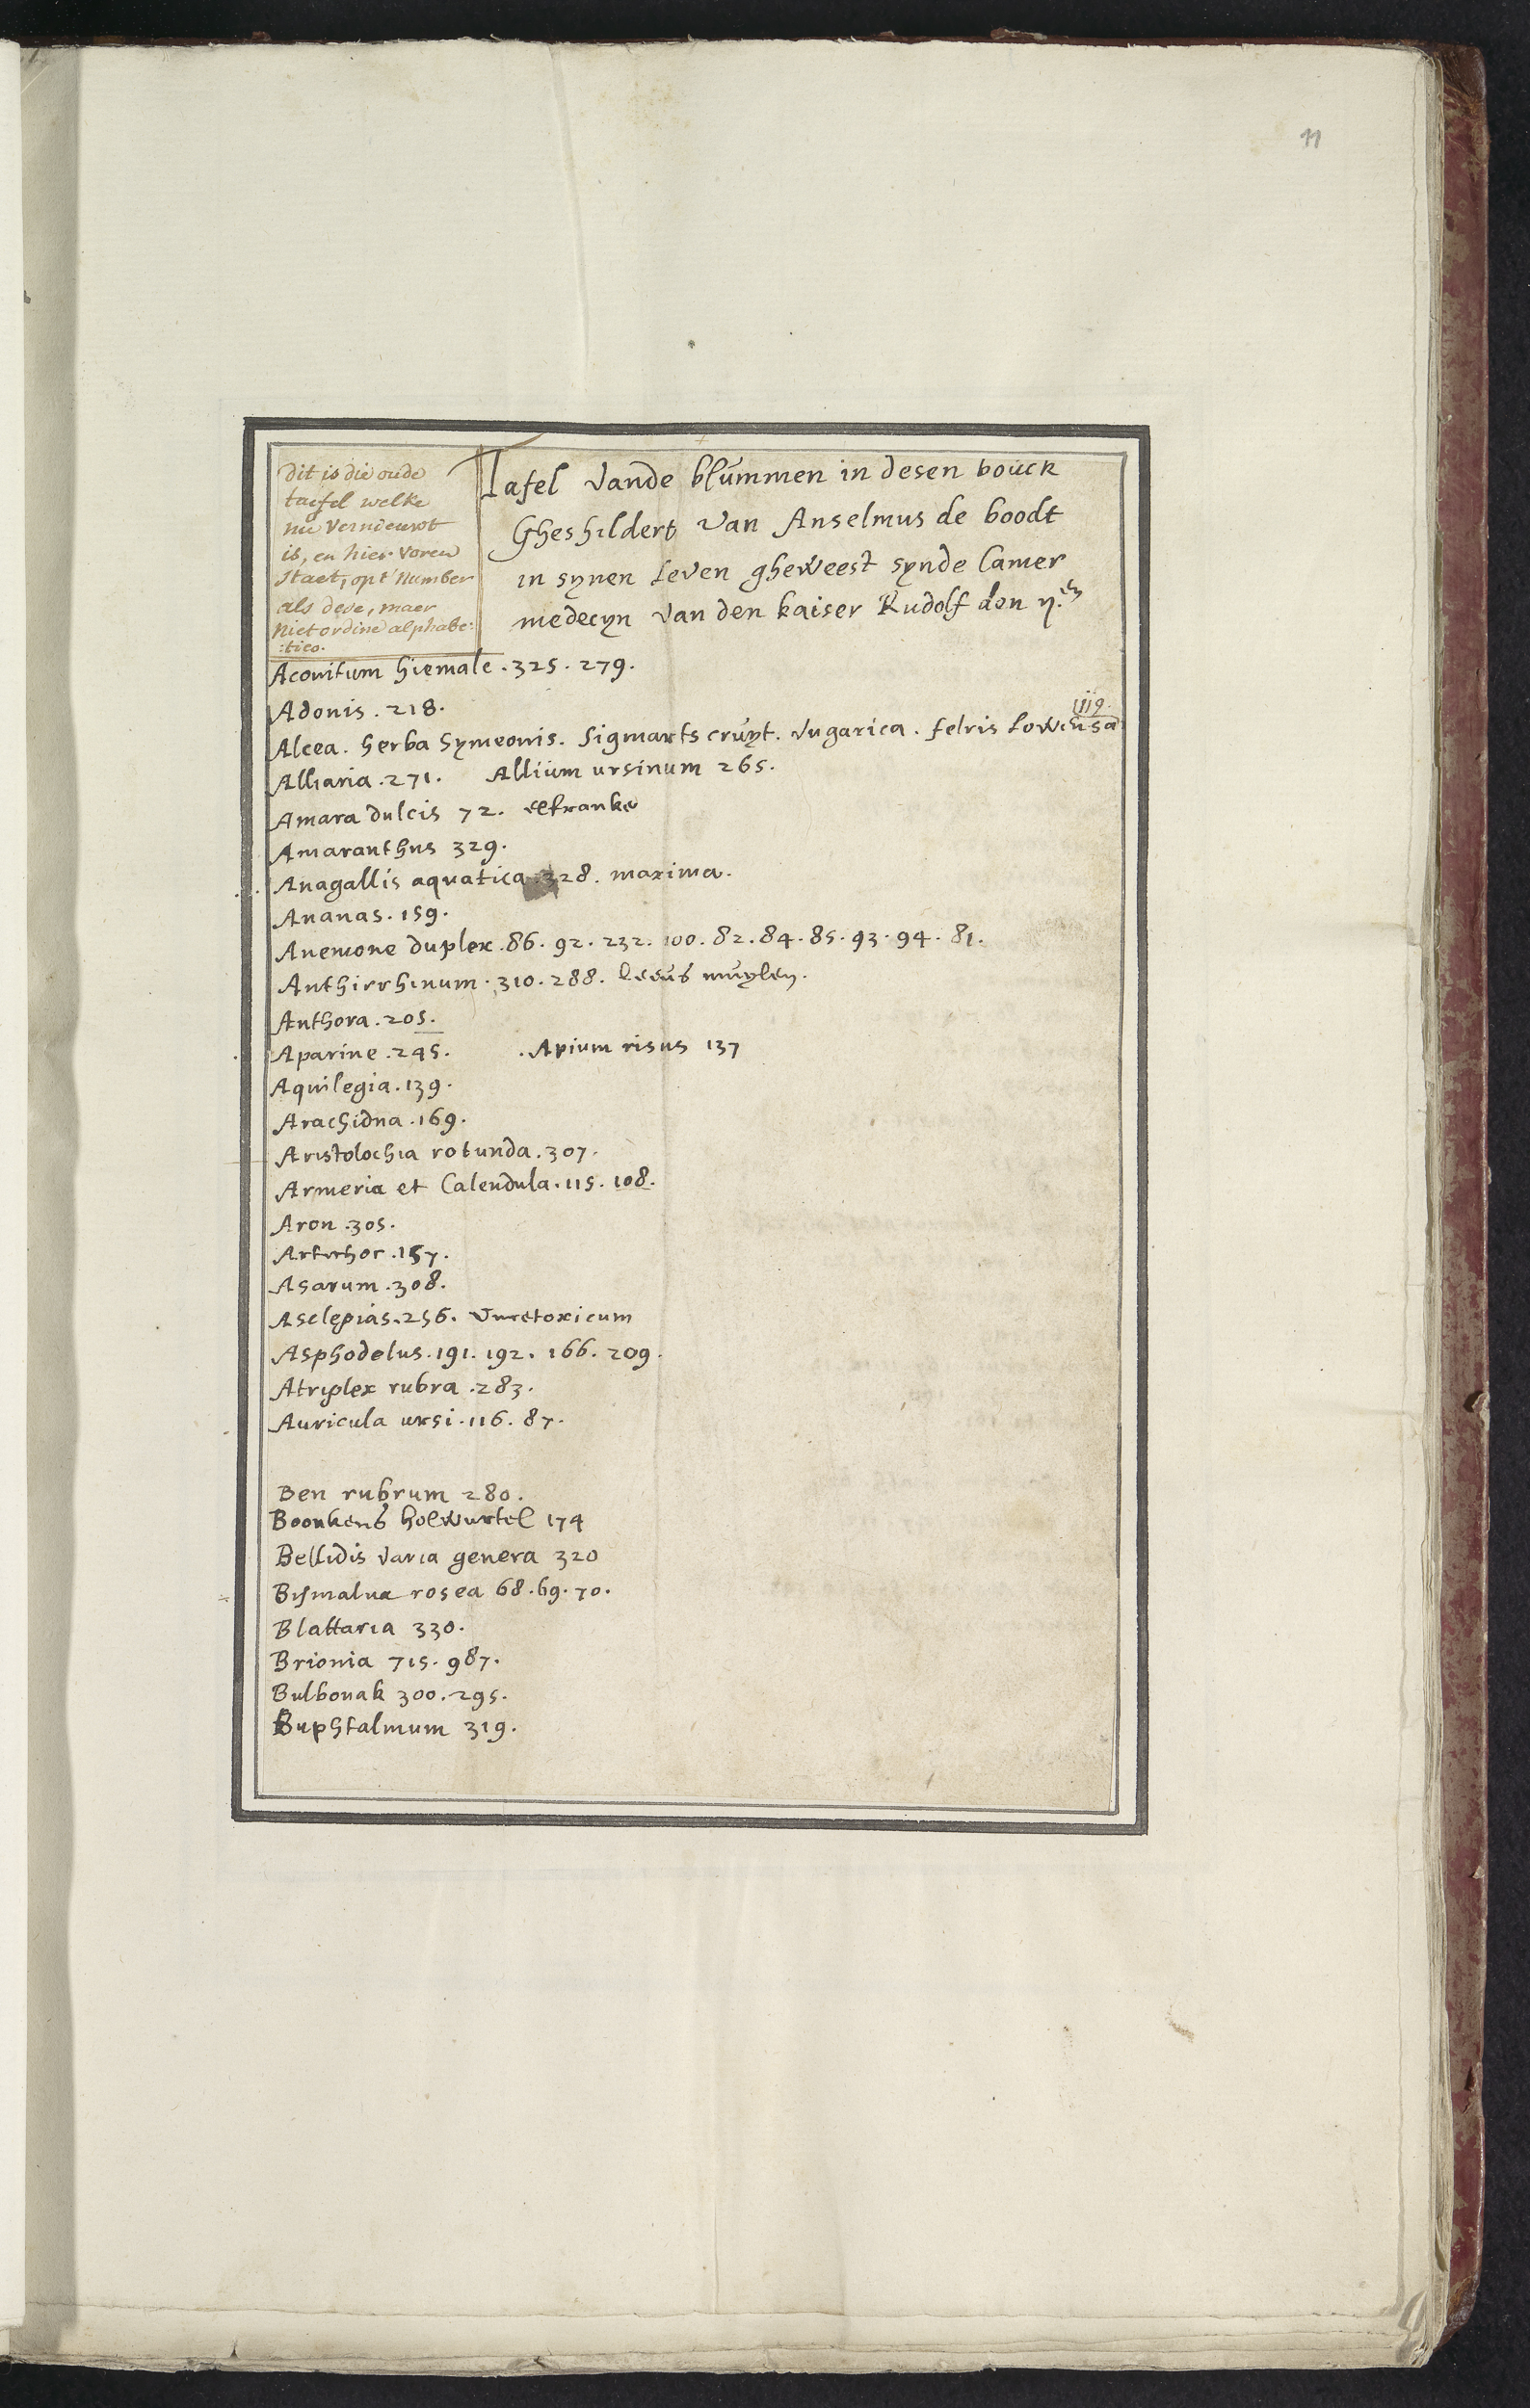 11
Dit is die oude
taefel welke
nu vernieuwt
is, en hier voren
staet, op t' number
als dese, maer
niet ordine alphabe:
:tico.
Tafel vande blummen in desen bouck
Gheshildert van Anselmus de boodt
in synen leven gheweest synde Camer
medecyn van den kaiser Rudolf den
Aconitum hiemale . 325 . 279.
Adonis . 218.
119.
Alcea . herba Symeonis . Sigmarts cruyt . Vngarica . felris
Alliaria . 271. Allium ursinum 265.
Amara dulcis 72. elfranke
Amaranthus 329.
Anagallis aquatica . 328. maxima.
Ananas . 159.
Anemone duplex . 86 . 92 . 232 . 100 . 82 . 84 . 85 . 93 . 94 . 81.
Anthirrhinum . 310 . 288. leeus muylen.
Anthora . 205.
Aparine . 245. . Apium risus 137
Aquilegia . 139.
Arachidna . 169.
Aristolochia rotunda . 307.
Armeria et Calendula . 115. 108.
Aron . 305.
Artichoc . 157.
Asarum . 308.
Asclepias . 256. Vincetoxicum
Asphodelus . 191. 192. 166. 209.
Atriplex rubra . 283.
Auricula ursi . 116. 87.
Ben rubrum 280.
Boonkens holwurtel 174
Bellidis varia genera 320
Bismalua rosea 68. 69. 70.
Blattaria 330.
Brionia 715. 987.
Bulbonak 300. 295.
Buphtalmum 319.